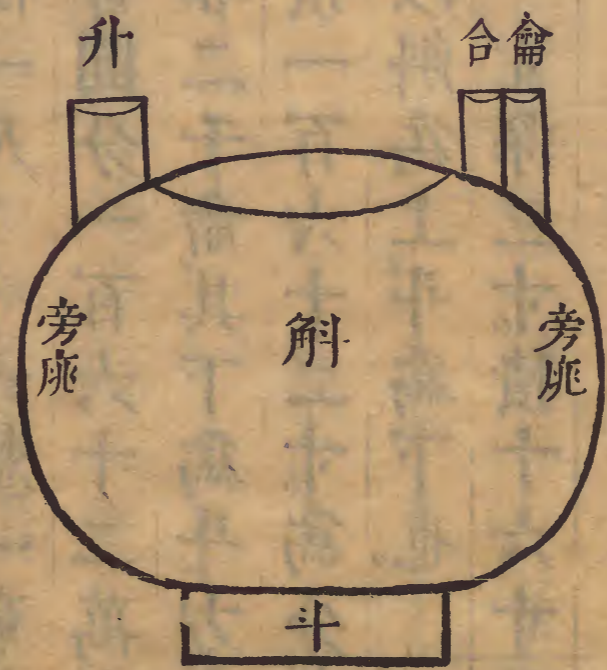 升
合龠
旁庣
斛
旁庣
斗